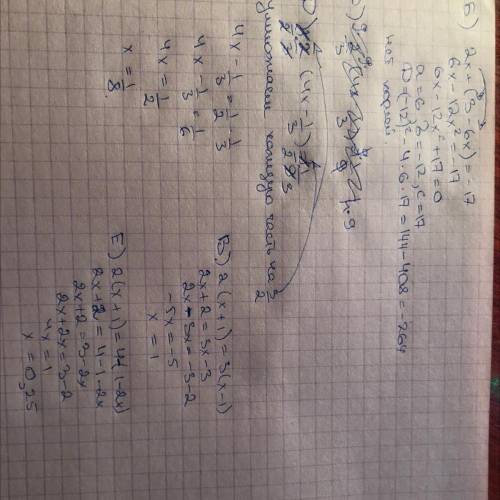 Б) 2x + (3 - 6x) = -17
6x - 12x² = -17
6x - 12x² + 17 = 0
a = 6, b = -12, c = 17
D = (-12)² - 4 · 6 · 17 = 144 - 408 = -264
нет корней.
(4x - 1/3)
умножаем каждую часть на 3/2
4x - 1/3 = 1/2 - 1/3
4x - 1/3 = 1/6
4x = 1/2
x = 1/8.
В) 2(x+1) = 3(x-1)
2x + 2 = 5x - 3
2x - 5x = -3 - 2
-5x = -5
x = 1
Е) 2(x+1) = 4(1-2x)
2x + 2 = 4 - 1 - 2x
2x + 2 = 3 - 2x
2x + 2x = 3 - 2
4x = 1
x = 0,25